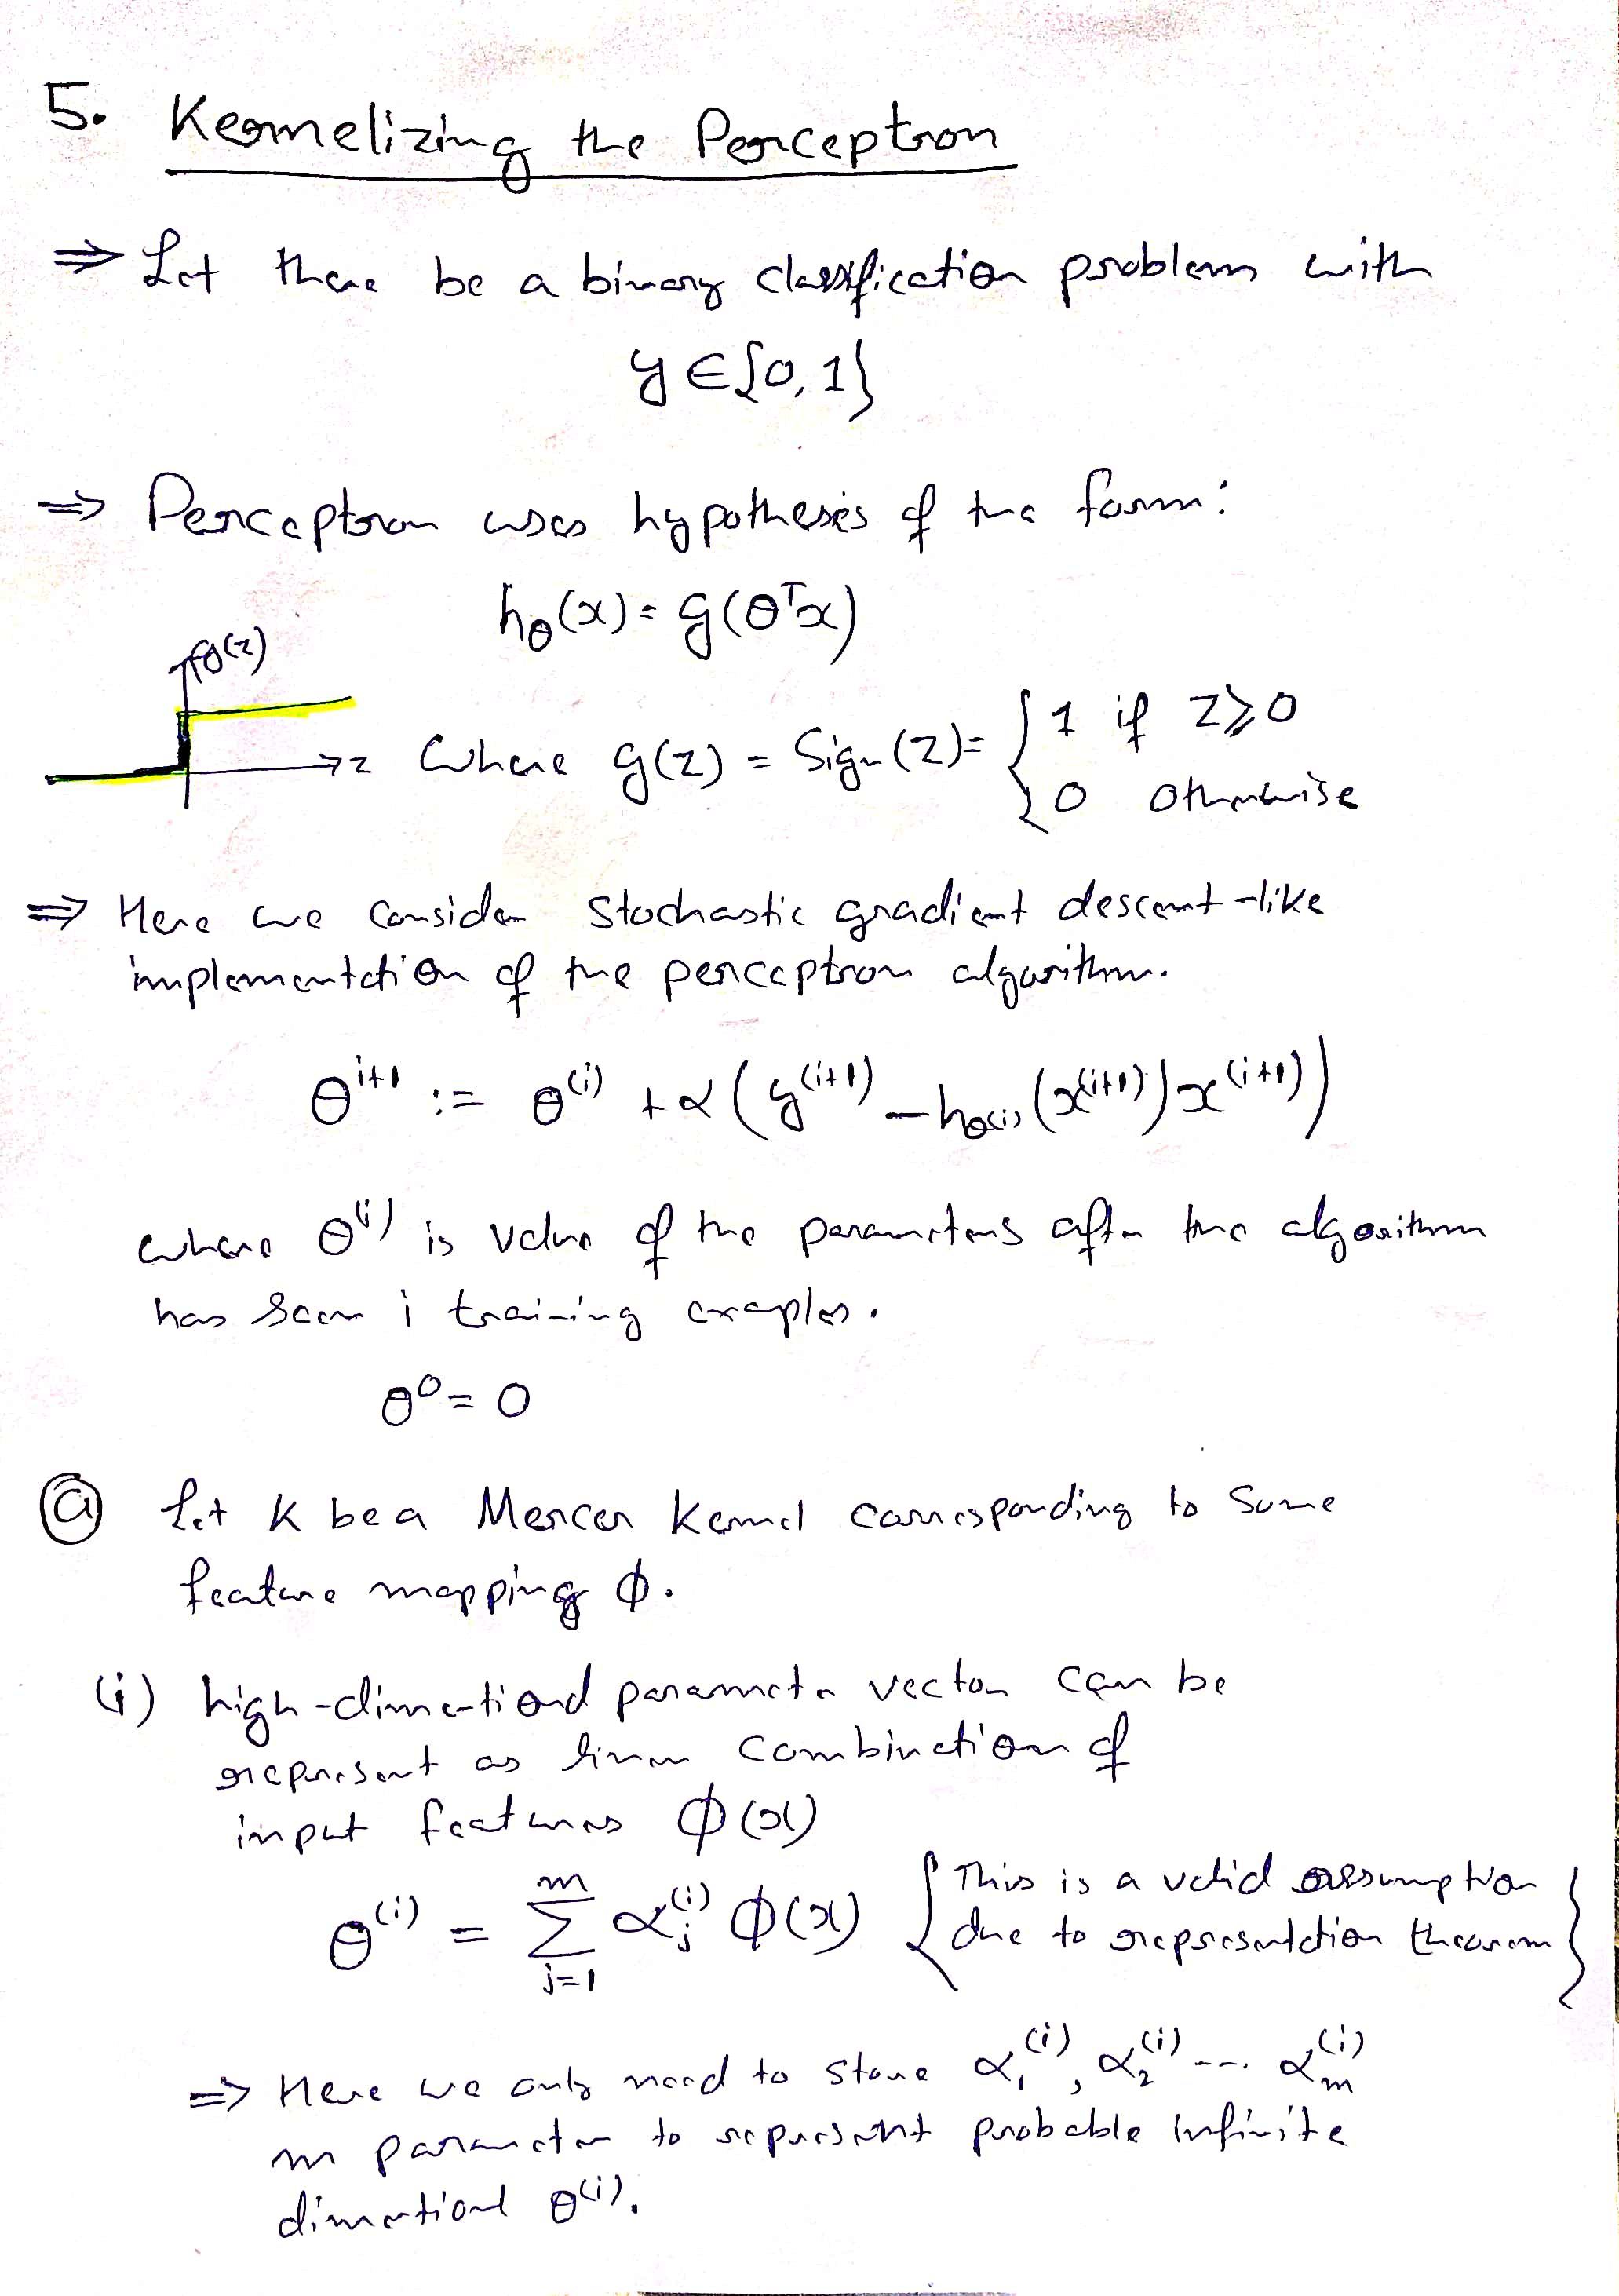 5. Kernelizing the Perceptron
⇒ Let there be a binary classification problem with
y ∈ {0, 1}
⇒ Perceptron uses hypotheses of the form:
h_θ(x) = g(θ^T x)
g(z)
→ z where g(z) = Sign(z) = { 1 if z ⩾ 0
0 otherwise
⇒ Here we consider stochastic gradient descent-like
implementation of the perceptron algorithm.
θ^{i+1} := θ^{(i)} + α (y^{(i+1)} − h_{θ^{(i)}} (x^{(i+1)}) x^{(i+1)})
where θ^{(i)} is value of the parameters after the algorithm
has seen i training examples.
θ^0 = 0
(a) Let K be a Mercer kernel corresponding to some
feature mapping ϕ.
(i) high-dimentional parameter vector can be
represent as linear combination of
input features ϕ(x)
θ^{(i)} = Σ_{j=1}^{m} α_j^{(i)} ϕ(x) { This is a valid assumption
due to representation theorem }
⇒ Here we only need to store α_1^{(i)}, α_2^{(i)} --- α_m^{(i)}
m parameter to represent probable infinite
dimentional θ^{(i)}.